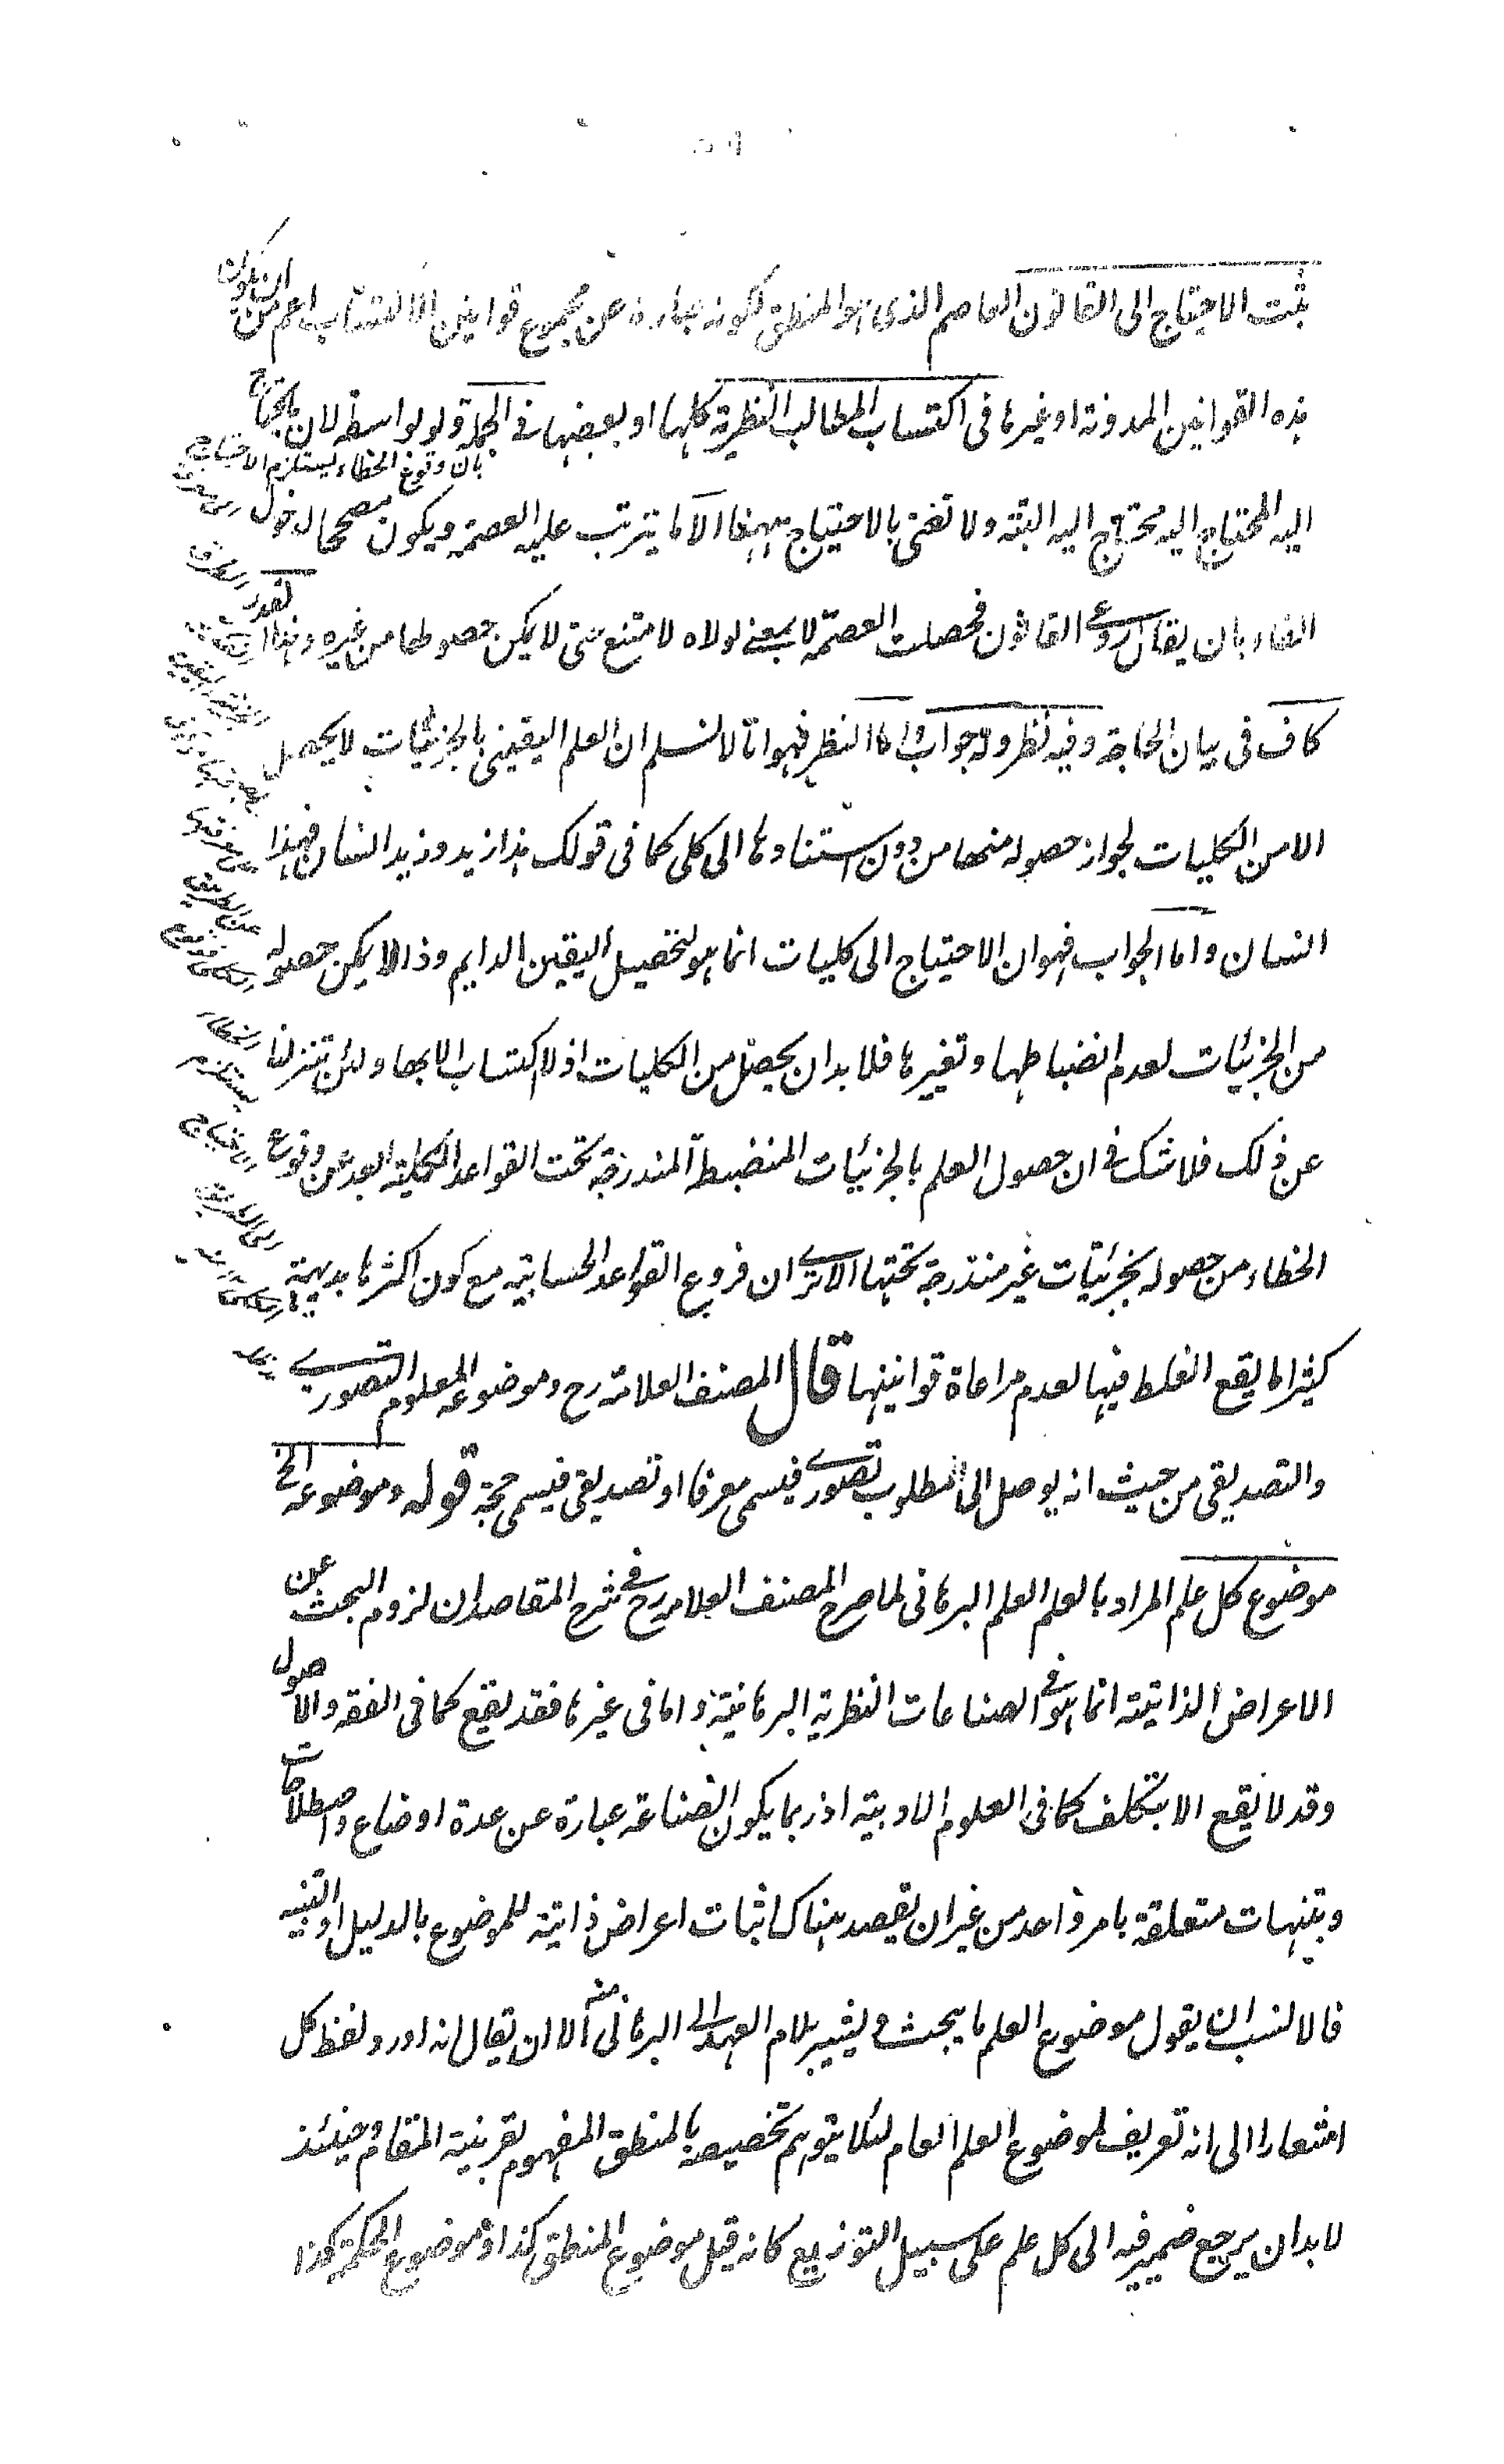 ثبت الاحتياج الى القانون العاصم الذى هو المنطق لكونه عبارة عن مجموع قوانين الاكتساب اعم من ان يكون
هذه القوانين المدونة او غيرها فى اكتساب المطالب النظرية كلها او بعضها فى الجملة ولو بواسطة لان ما يحتاج
بان وقوع الخطاء يستلزم الاحتياج
اليه المحتاج اليه محتاج اليه البتة ولا نعنى بالاحتياج ههنا الا ما يترتب عليه العصمة ويكون مصححا لدخول
الفاء بان يقال روعى القانون فحصلت العصمة لا بمعنى لولاه لامتنع حتى لا يمكن حصولها من غيره وهذا القدر
كاف فى بيان الحاجة وفيه نظر وله جواب اما النظر فهو انا لا نسلم ان العلم اليقينى بالجزئيات لا يحصل
الا من الكليات لجواز حصوله منها من دون استنادها الى كلى كما فى قولك هذا زيد وزيد انسان فهذا
انسان واما الجواب فهو ان الاحتياج الى كليات انما هو لتحصيل اليقين الدايم وذا لا يمكن حصوله
من الجزئيات لعدم انضباطها وتغيرها فلا بد ان يحصل من الكليات اذ لا اكتساب الا بها ولئن تنزلنا
عن ذلك فلا شك فى ان حصول العلم بالجزئيات المنضبطة المندرجة تحت القواعد الكلية ابعد عن وقوع
الخطاء من حصوله بجزئيات غير مندرجة تحتها الا ترى ان فروع القواعد الحسابية مع كون اكثرها بديهية
كثيرا ما يقع الغلط فيها لعدم مراعاة قوانينها قال المصنف العلامة رح وموضوعه المعلوم التصورى
والتصديقى من حيث انه يوصل الى المطلوب تصورى فيسمى معرفا او تصديقى فيسمى حجة قوله وموضوعه الخ
موضوع كل علم المراد بالعلم العلم البرهانى لما صرح المصنف العلامة رح فى شرح المقاصد ان لزوم البحث عن
الاعراض الذاتية انما هو فى الصناعات النظرية البرهانية واما فى غيرها فقد يقع كما فى الفقه والاصول
وقد لا يقع الا بتكلف كما فى العلوم الادبية اذ ربما يكون الصناعة عبارة عن عدة اوضاع واصطلاحات
وتنبيهات متعلقة بامر واحد من غير ان يقصد هناك اثبات اعراض ذاتية للموضوع بالدليل او التنبيه
فالانسب ان يقول موضوع العلم ما يبحث ويشير بلام العهد الى البرهانى منه الا ان يقال انه اورد لفظ كل
اشعارا الى انه تعريف لموضوع العلم العام لئلا يتوهم تخصيصه بالمنطق المفهوم بقرينة المقام وحينئذ
لا بد ان يرجع ضمير فيه الى كل علم على سبيل التوزيع كانه قيل موضوع المنطق كذا وموضوع الحكمة كذا